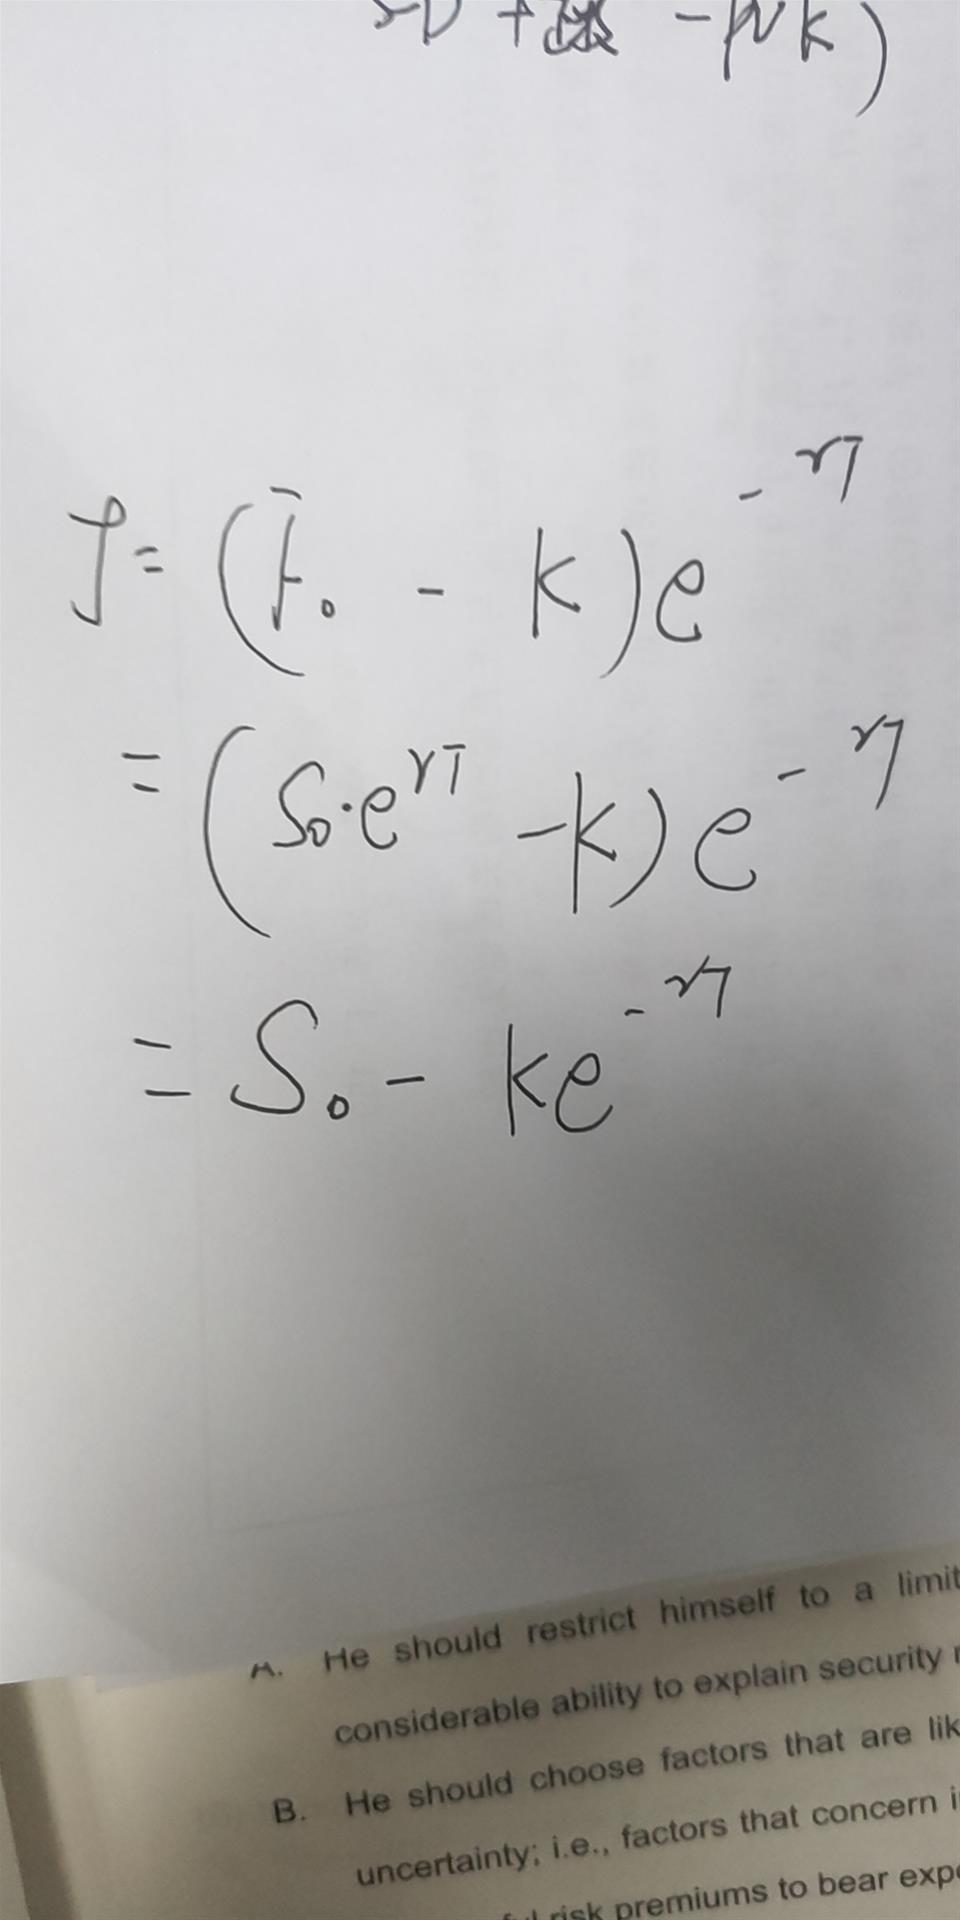 - PVK)
f = (F₀ - K)e^-rT
= (S₀·e^rT - K)e^-rT
= S₀ - Ke^-rT
A. He should restrict himself to a limit
considerable ability to explain security
B. He should choose factors that are lik
uncertainty; i.e., factors that concern
risk premiums to bear expe